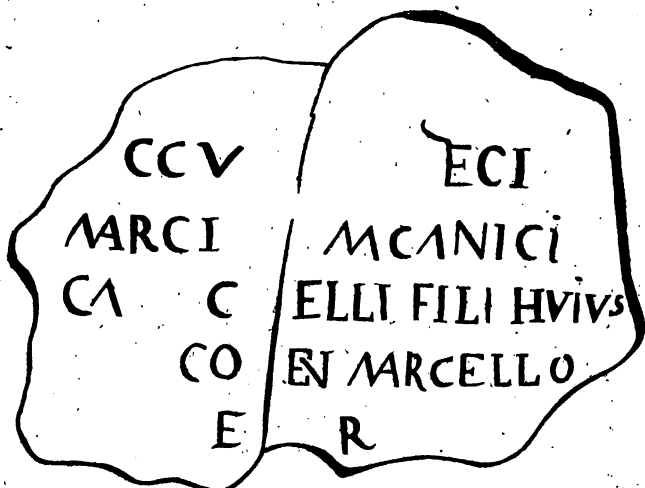 CCV ECI
MARCI MCANICI
CA C ELLI FILI HVIVS
CO EN MARCELLO
E R